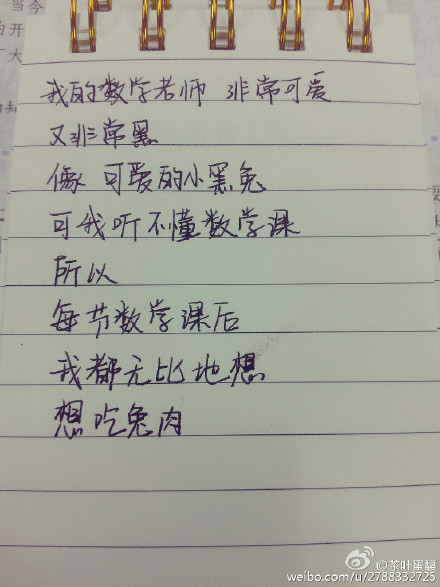 当今
的开
大
的知
我的数学老师 非常可爱
又非常黑
像 可爱的小黑兔
可我听不懂数学课
所以
每节数学课后
我都无比地想
想吃兔肉
@茶叶蛋馥
weibo.com/u/2788332725